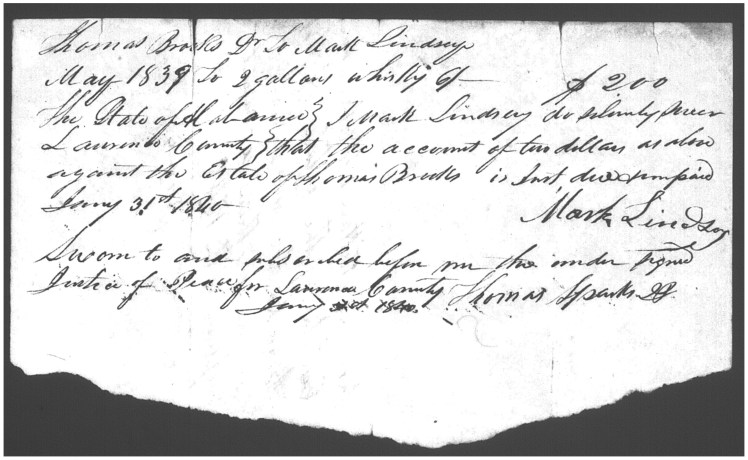 Thomas Brooks Dr To Mark Lindsey
May 1839 To 2 gallons whisky $ 2.00
The State of Alabama } I Mark Lindsey do solemnly swear
Laurence County } that the account of two dollars as above
against the Estate of Thomas Brooks is Just due & unpaid
Jany 31st 1840
Mark Lindsey
Sworn to and subscribed before me the under signed
Justice of Peace for Laurence County Thomas Sparks JP
Jany 31st 1840.